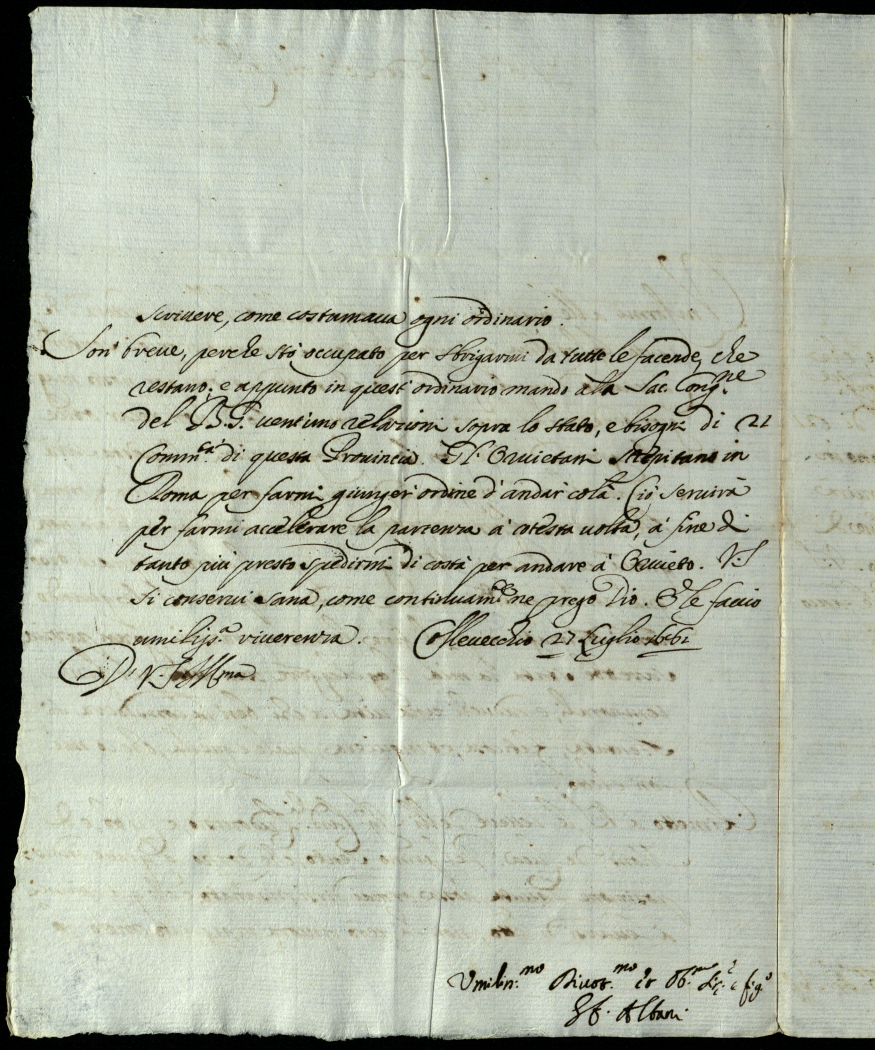 scriuere, come costumaua ogni ordinario.
Son breue, perche stò occupato per sbrigarmi da tutte le facende, che
restano; e appunto in quest' ordinario mando alla Sac. Cong.ne
del B. G. uentuno relazioni sopra lo stato, e bisogni di 21
Comm.tà di questa Prouincia. Gl' Oruietani strepitano in
Roma per farmi giunger' ordine d' andar colà. Ciò seruirà
per farmi accelerare la partenza à cotesta uolta, à fine di
tanto più presto spedirmi di costà per andare à Oruieto. V.S.
si conserui sana, come continuam.te ne prego Dio. E le faccio
umiliss.a riuerenza. Colleuecchio 27 Luglio 1661
Di V.S. Ill.ma
Umilis.mo Diuot.mo et Ob.mo
Albani